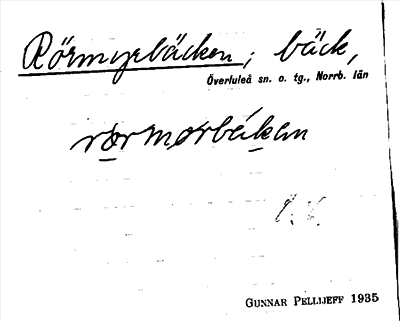 Rörmyrbäcken; bäck,
Överluleå sn. o. tg., Norrb. län
rørmorbäkan
GUNNAR PELLIJEFF 1935